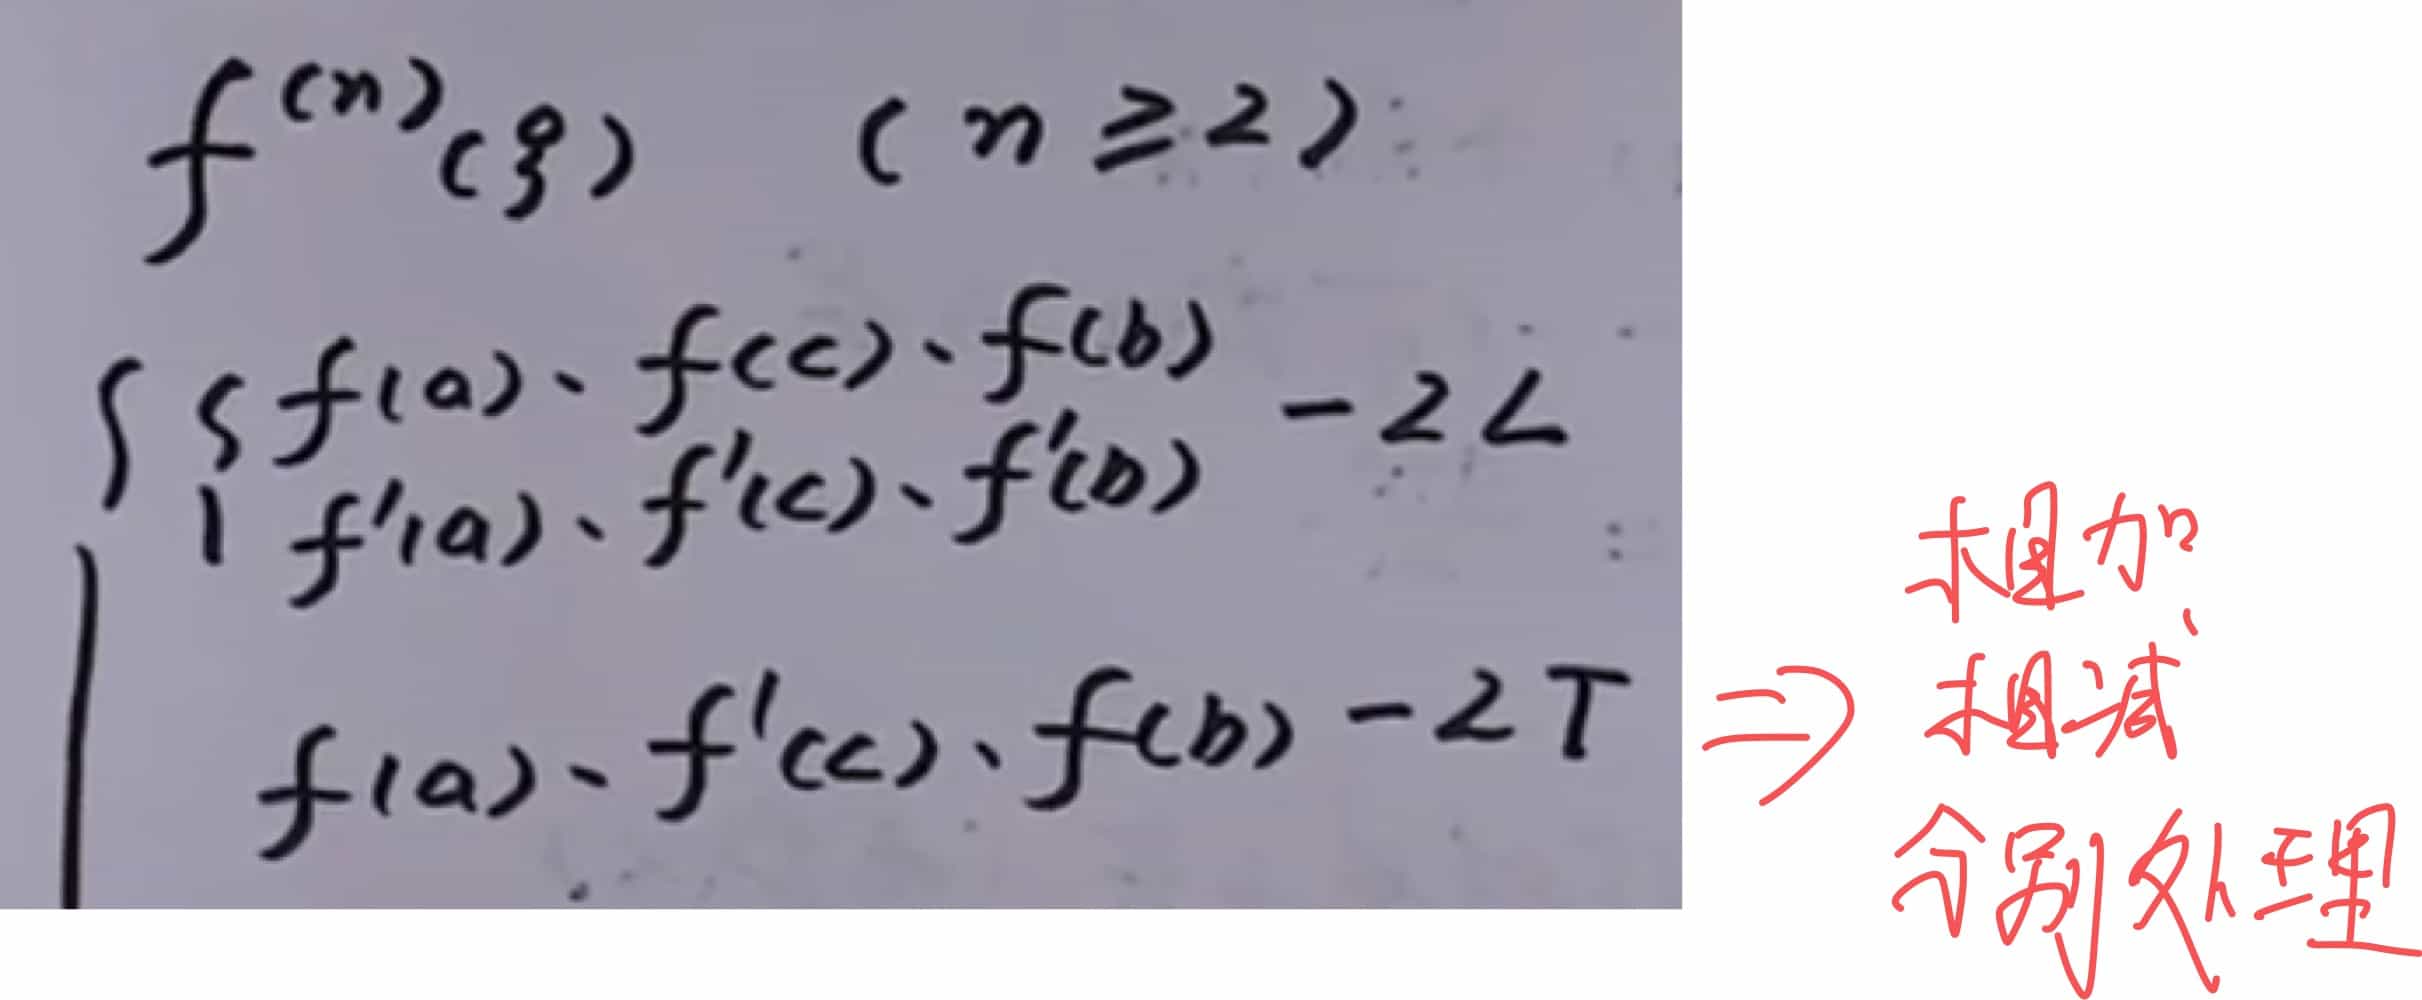 f⁽ⁿ⁾(ξ) (n≥2)
f(a)、f(c)、f(b)
-2L
f'(a)、f'(c)、f'(b)
f(a)、f'(c)、f(b)-2T
⇒
相加、
相减
分别处理